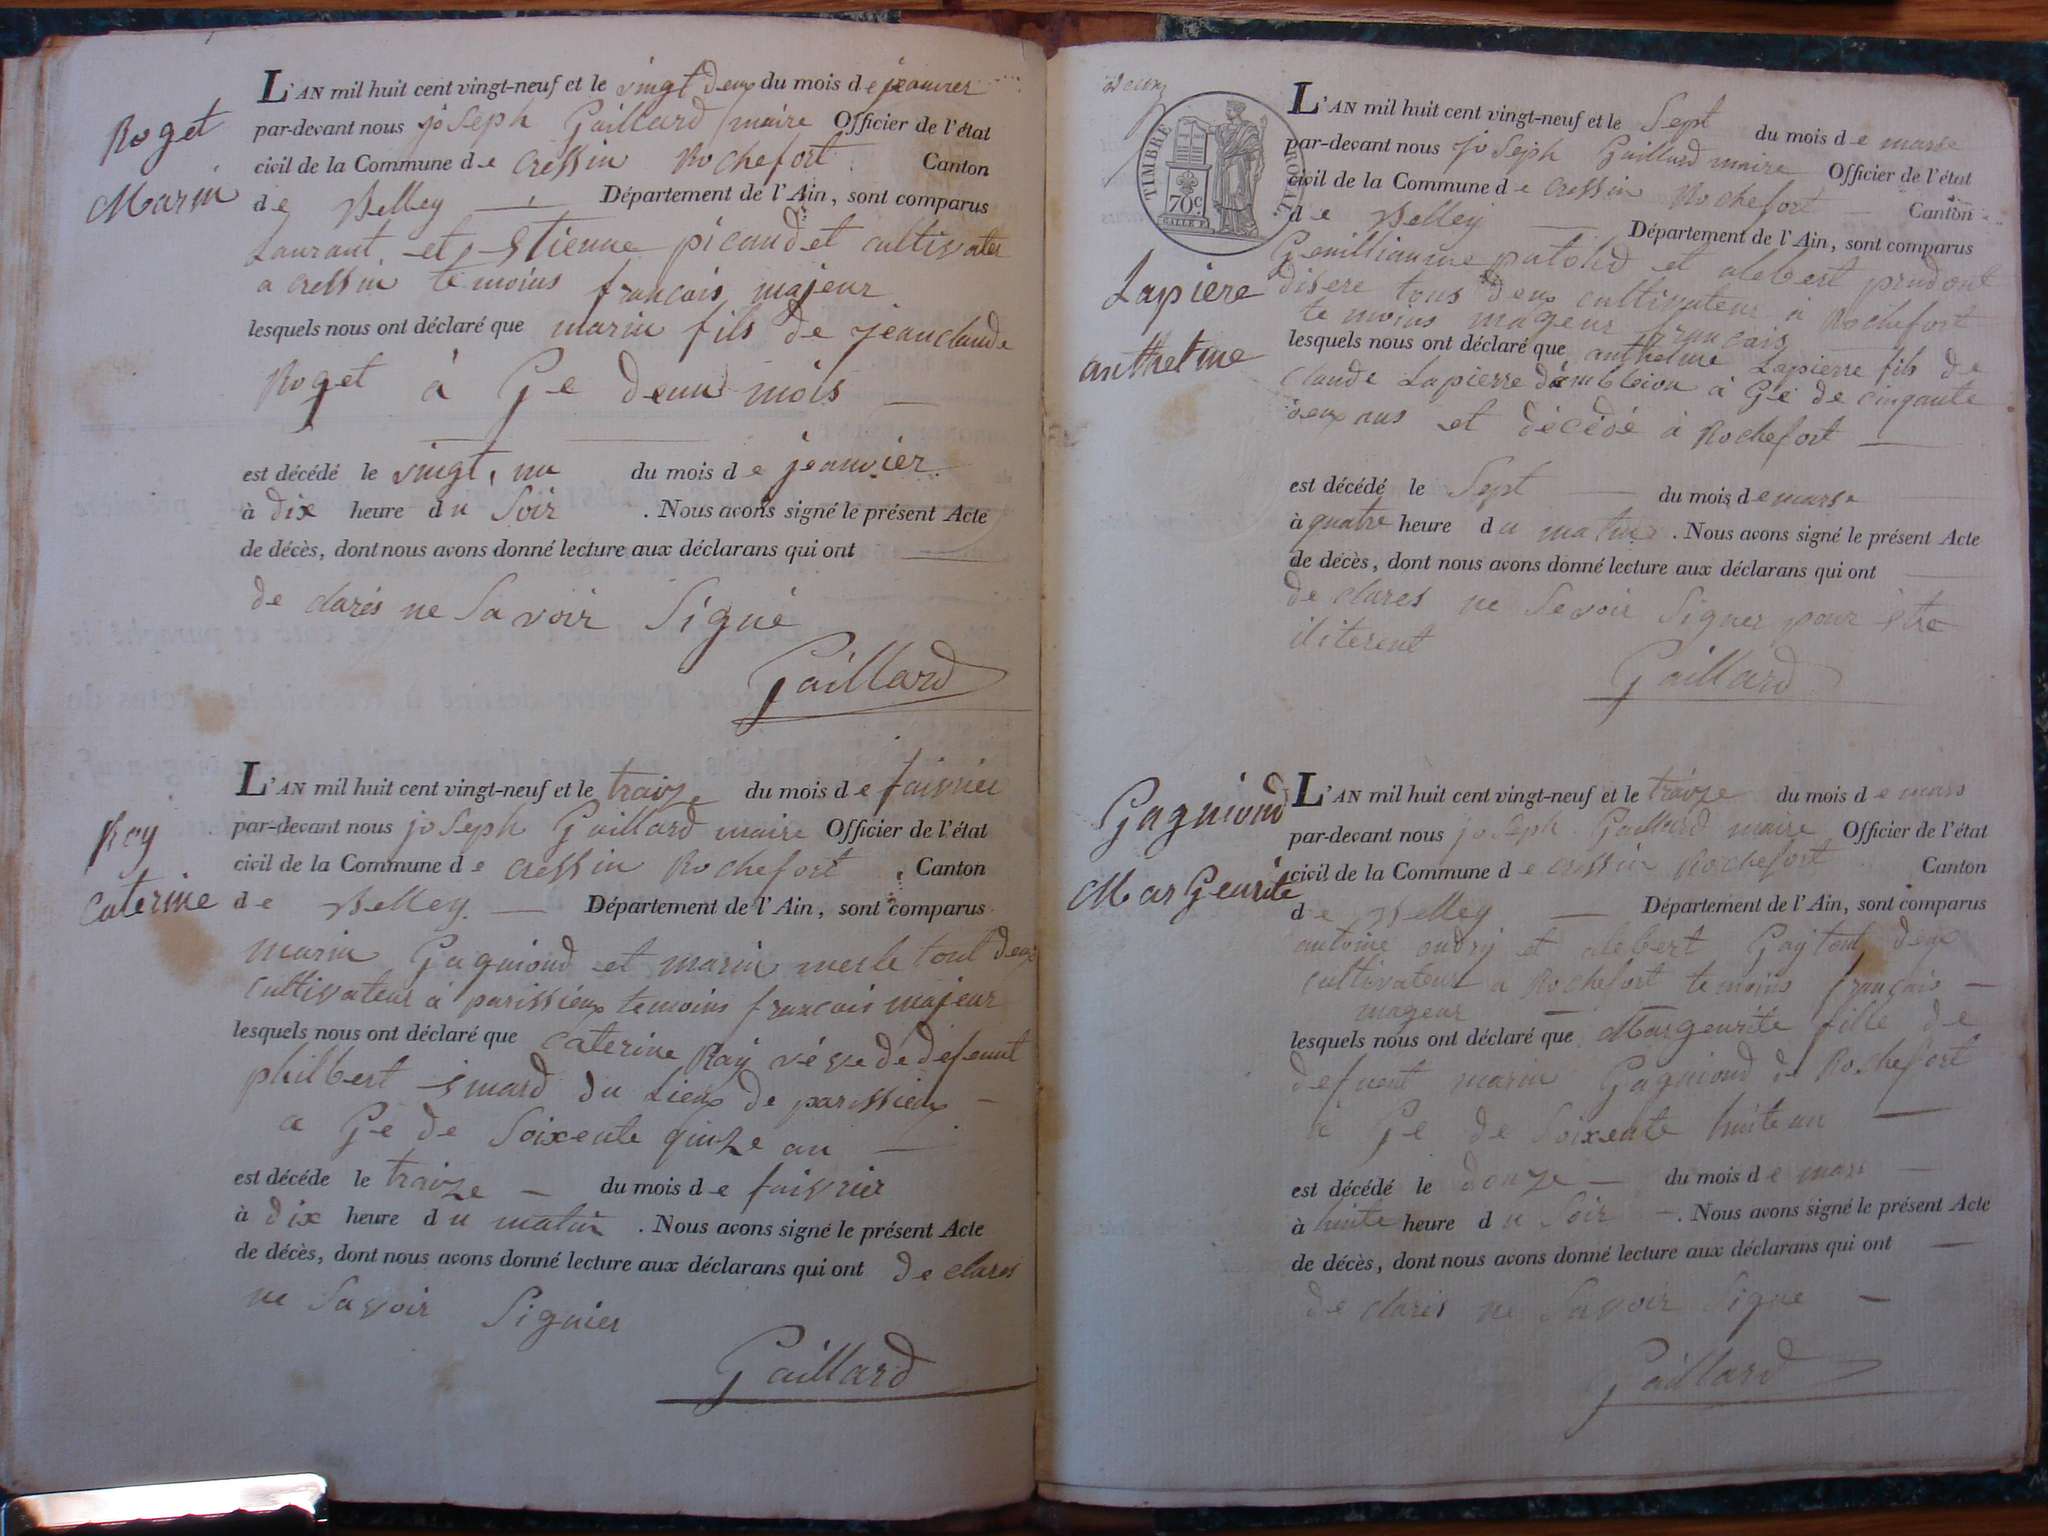 Roget
Marin
L'AN mil huit cent vingt-neuf et le vingt deux du mois de jeanvier
par-devant nous joseph Gaillard maire Officier de l'état
civil de la Commune de Cressin Rochefort Canton
de Belley Département de l'Ain, sont comparus
Laurant et Etienne picaud et cultivater
a Cressin temoins français majeur
lesquels nous ont déclaré que marin fils de jeanclaude
Roget à Ge deux mois
est décédé le vingt un du mois de jeanvier
à dix heure du Soir . Nous avons signé le présent Acte
de décès, dont nous avons donné lecture aux déclarans qui ont
de clarés ne Savoir Signé
Gaillard
Rey
Caterine
L'AN mil huit cent vingt-neuf et le traize du mois de faivrier
par-devant nous joseph Gaillard maire Officier de l'état
civil de la Commune de Cressin Rochefort Canton
de Belley Département de l'Ain, sont comparus
marin Gagniond et marin merle tout deux
cultivateur à parissieux temoins francais majeur
lesquels nous ont déclaré que Caterine Ray véve de defeunt
philbert du Lieux de parissieux
a Gé de Soixente quinze an
est décéde le traize du mois de faivrier
à dix heure du matin . Nous avons signé le présent Acte
de décès, dont nous avons donné lecture aux déclarans qui ont de clarés
ne Savoir Signier
Gaillard
deux
TIMBRE ROYAL
70c.
Lapiere
anthelme
L'AN mil huit cent vingt-neuf et le Sept du mois de marse
par-devant nous joseph Gaillard maire Officier de l'état
civil de la Commune de Cressin Rochefort Canton
de Belley Département de l'Ain, sont comparus
et alebert prudont
disere tous deux cultivateur à Rochefort
temoins mageur français
lesquels nous ont déclaré que anthelme Lapierre fils de
Claude Lapierre d'ambleion à Gé de cinqante
deux ans et décédé à Rochefort
est décédé le Sept du mois de marse
à quatre heure du matin . Nous avons signé le présent Acte
de décès, dont nous avons donné lecture aux déclarans qui ont
de clares ne Sevoir Signer pour être
iliterent
Gaillard
Gagniond
MarGeurite
L'AN mil huit cent vingt-neuf et le traize du mois de mars
par-devant nous joseph Gaillard maire Officier de l'état
civil de la Commune de Cressin Rochefort Canton
de Belley Département de l'Ain, sont comparus
antoine ondry et alebert Gay tout deux
cultivateur a Rochefort temoins français
mageur
lesquels nous ont déclaré que Margeurite fille de
defuent marin Gagniond de Rochefort
à Gé de Soixente huite an
est décédé le douze du mois de mars
à huite heure du Soir . Nous avons signé le présent Acte
de décès, dont nous avons donné lecture aux déclarans qui ont
de clarés ne Savoir Signe
Gaillard